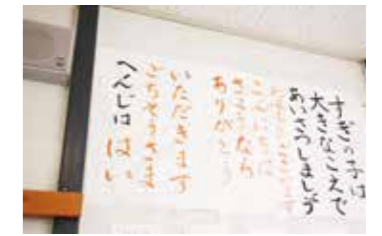 すぎの子は
大きなこえで
あいさつしましょう
こんにちは
さようなら
ありがとう
いただきます
ごちそうさま
へんじは はい